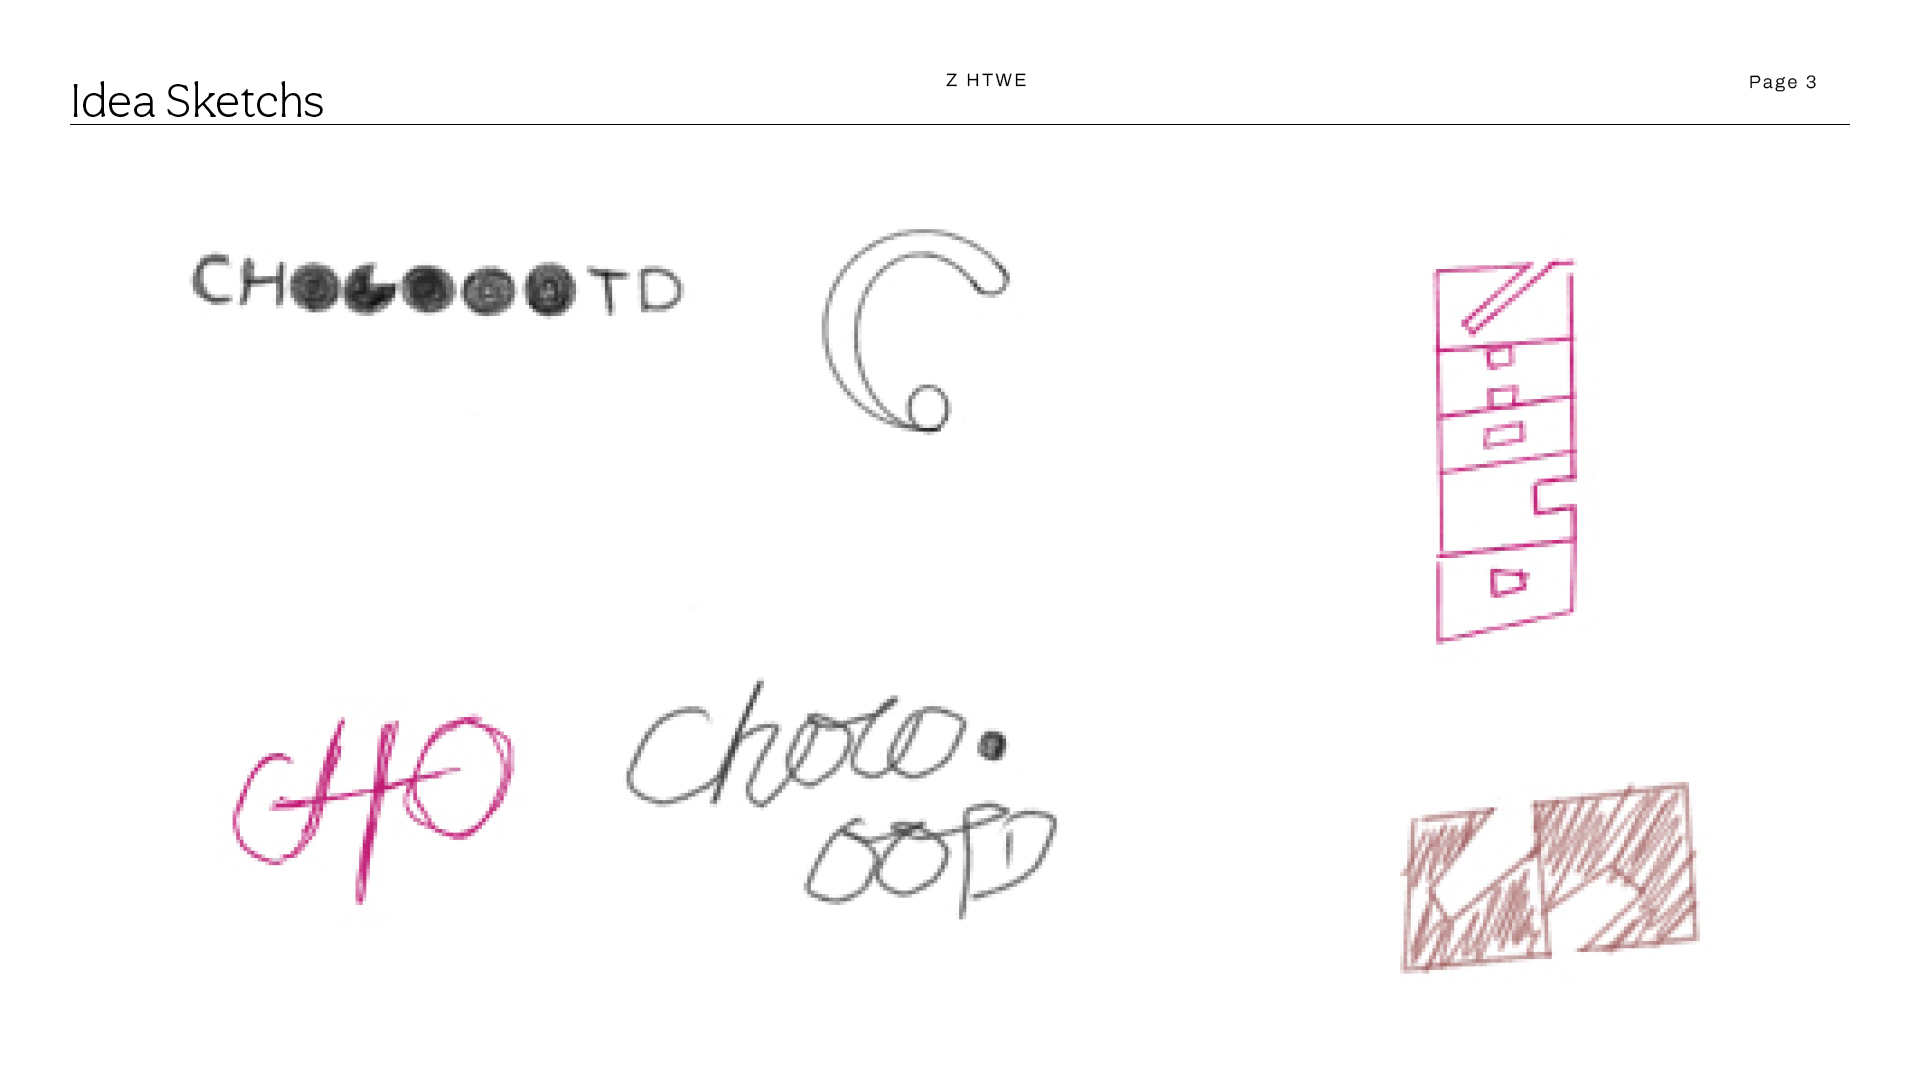 Idea Sketchs
Z HTWE
Page 3
CHOCOOOTD
C
CHO
Choco.
OOTD